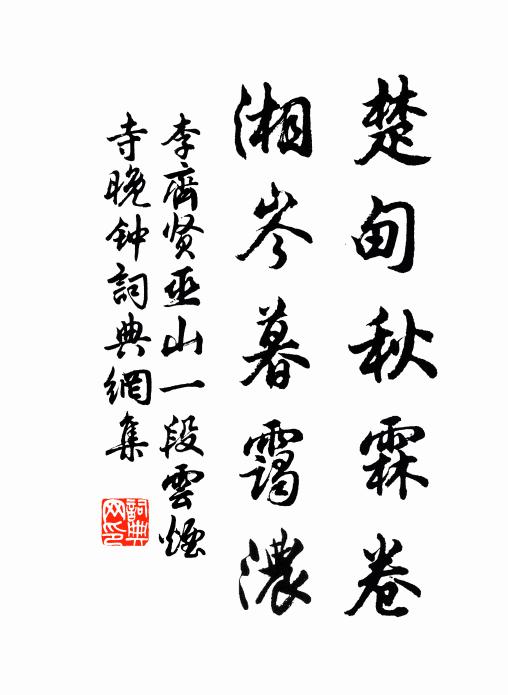 楚甸秋霖卷
湘岑暮靄濃
李齊贤巫山一段雲煙
寺晚钟詞典網集
詞典网印